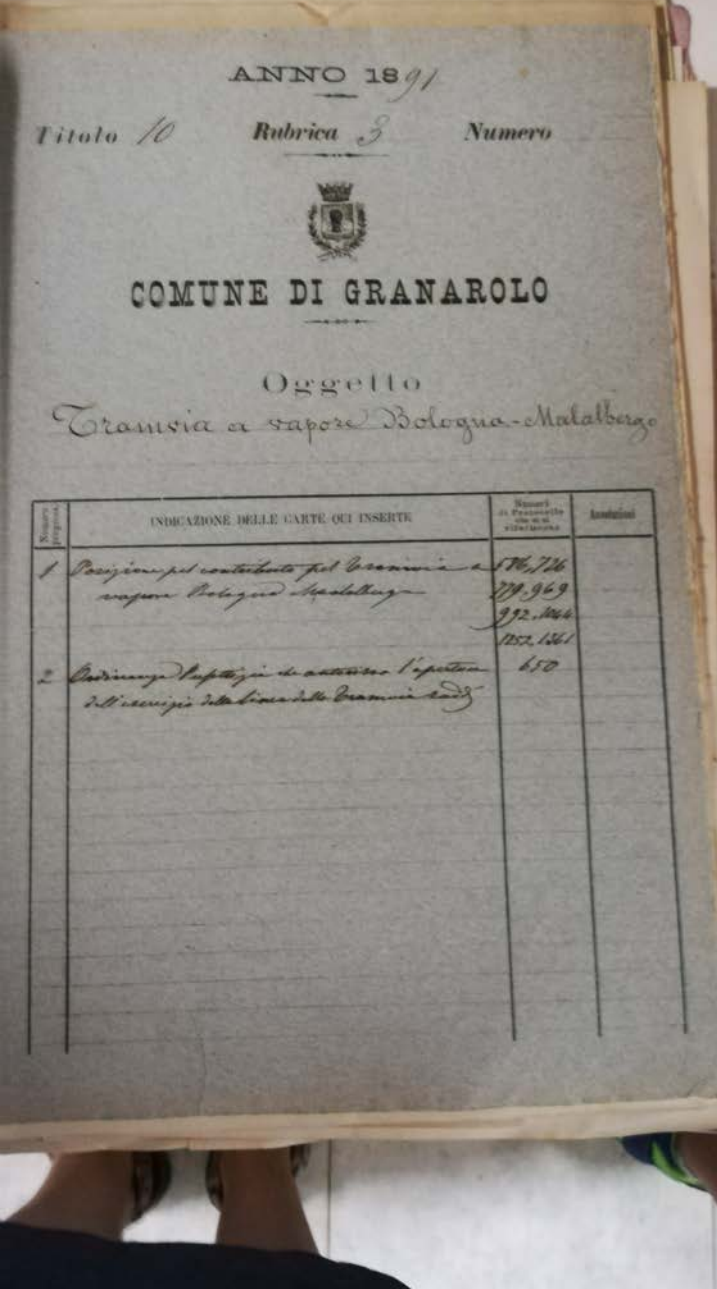 ANNO 1891
Titolo 10 Rubrica 3 Numero
COMUNE DI GRANAROLO
Oggetto
Tramvia a vapore Bologna-Malalbergo
Numero progress. INDICAZIONE DELLE CARTE QUI INSERTE Numeri di Protocollo che vi si riferiscono Annotazioni
1 Posizione pel contributo pel Tramvia a 586,726
vapore Bologna Malalbergo 779.969
992.1044
1252.1361
2 Ordinanza Prefettizia che autorizza l'apertura 650
dell'esercizio della linea della Tramvia sudd